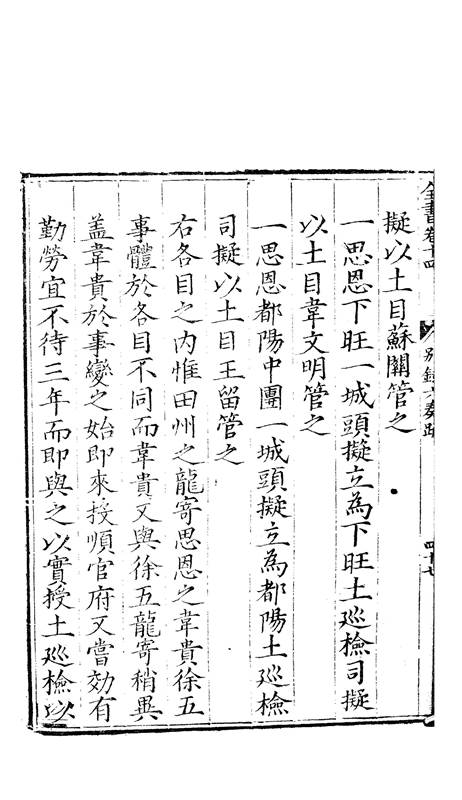 全書卷十四
別錄六奏疏
四十七
擬以土目蘇關管之
一思恩下旺一城頭擬立為下旺土巡檢司擬
以土目韋文明管之
一思恩都陽中團一城頭擬立為都陽土巡檢
司擬以土目王留管之
右各目之內惟田州之龍寄思恩之韋貴徐五
事體於各目不同而韋貴又與徐五龍寄稍異
盖韋貴於事變之始即來投順官府又嘗効有
勤勞宜不待三年而即與之以實授土巡檢以